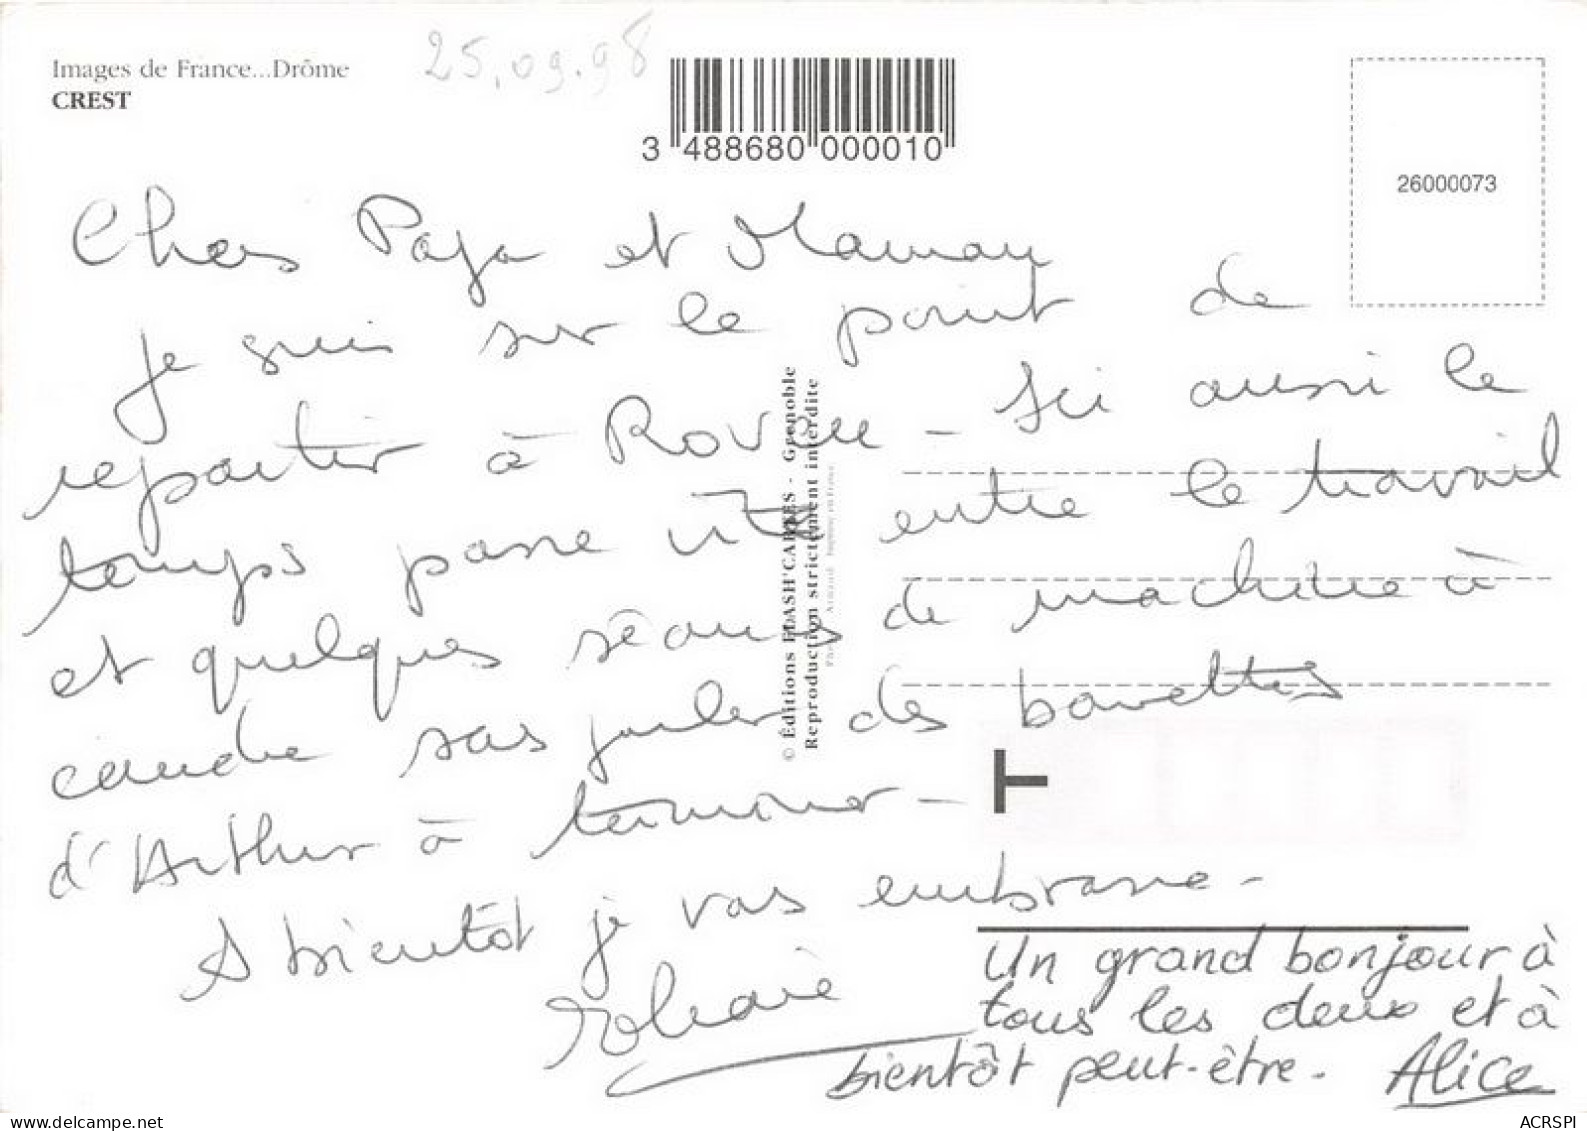 Images de France...Drôme
CREST
25.09.98
3 488680 000010
26000073
Chers Papa et Maman
je suis sur le point de
repartir à Rovon - Ici aussi le
temps passe vite entre le travail
et quelques séances de machine à
coudre sans parler des bavettes
d'Arthur à terminer -
A bientôt je vous embrasse -
Un grand bonjour à
tous les deux et à
bientôt peut-être - Alice
© Éditions FLASH'CARTES - Grenoble
Reproduction strictement interdite
T
ACRSPI